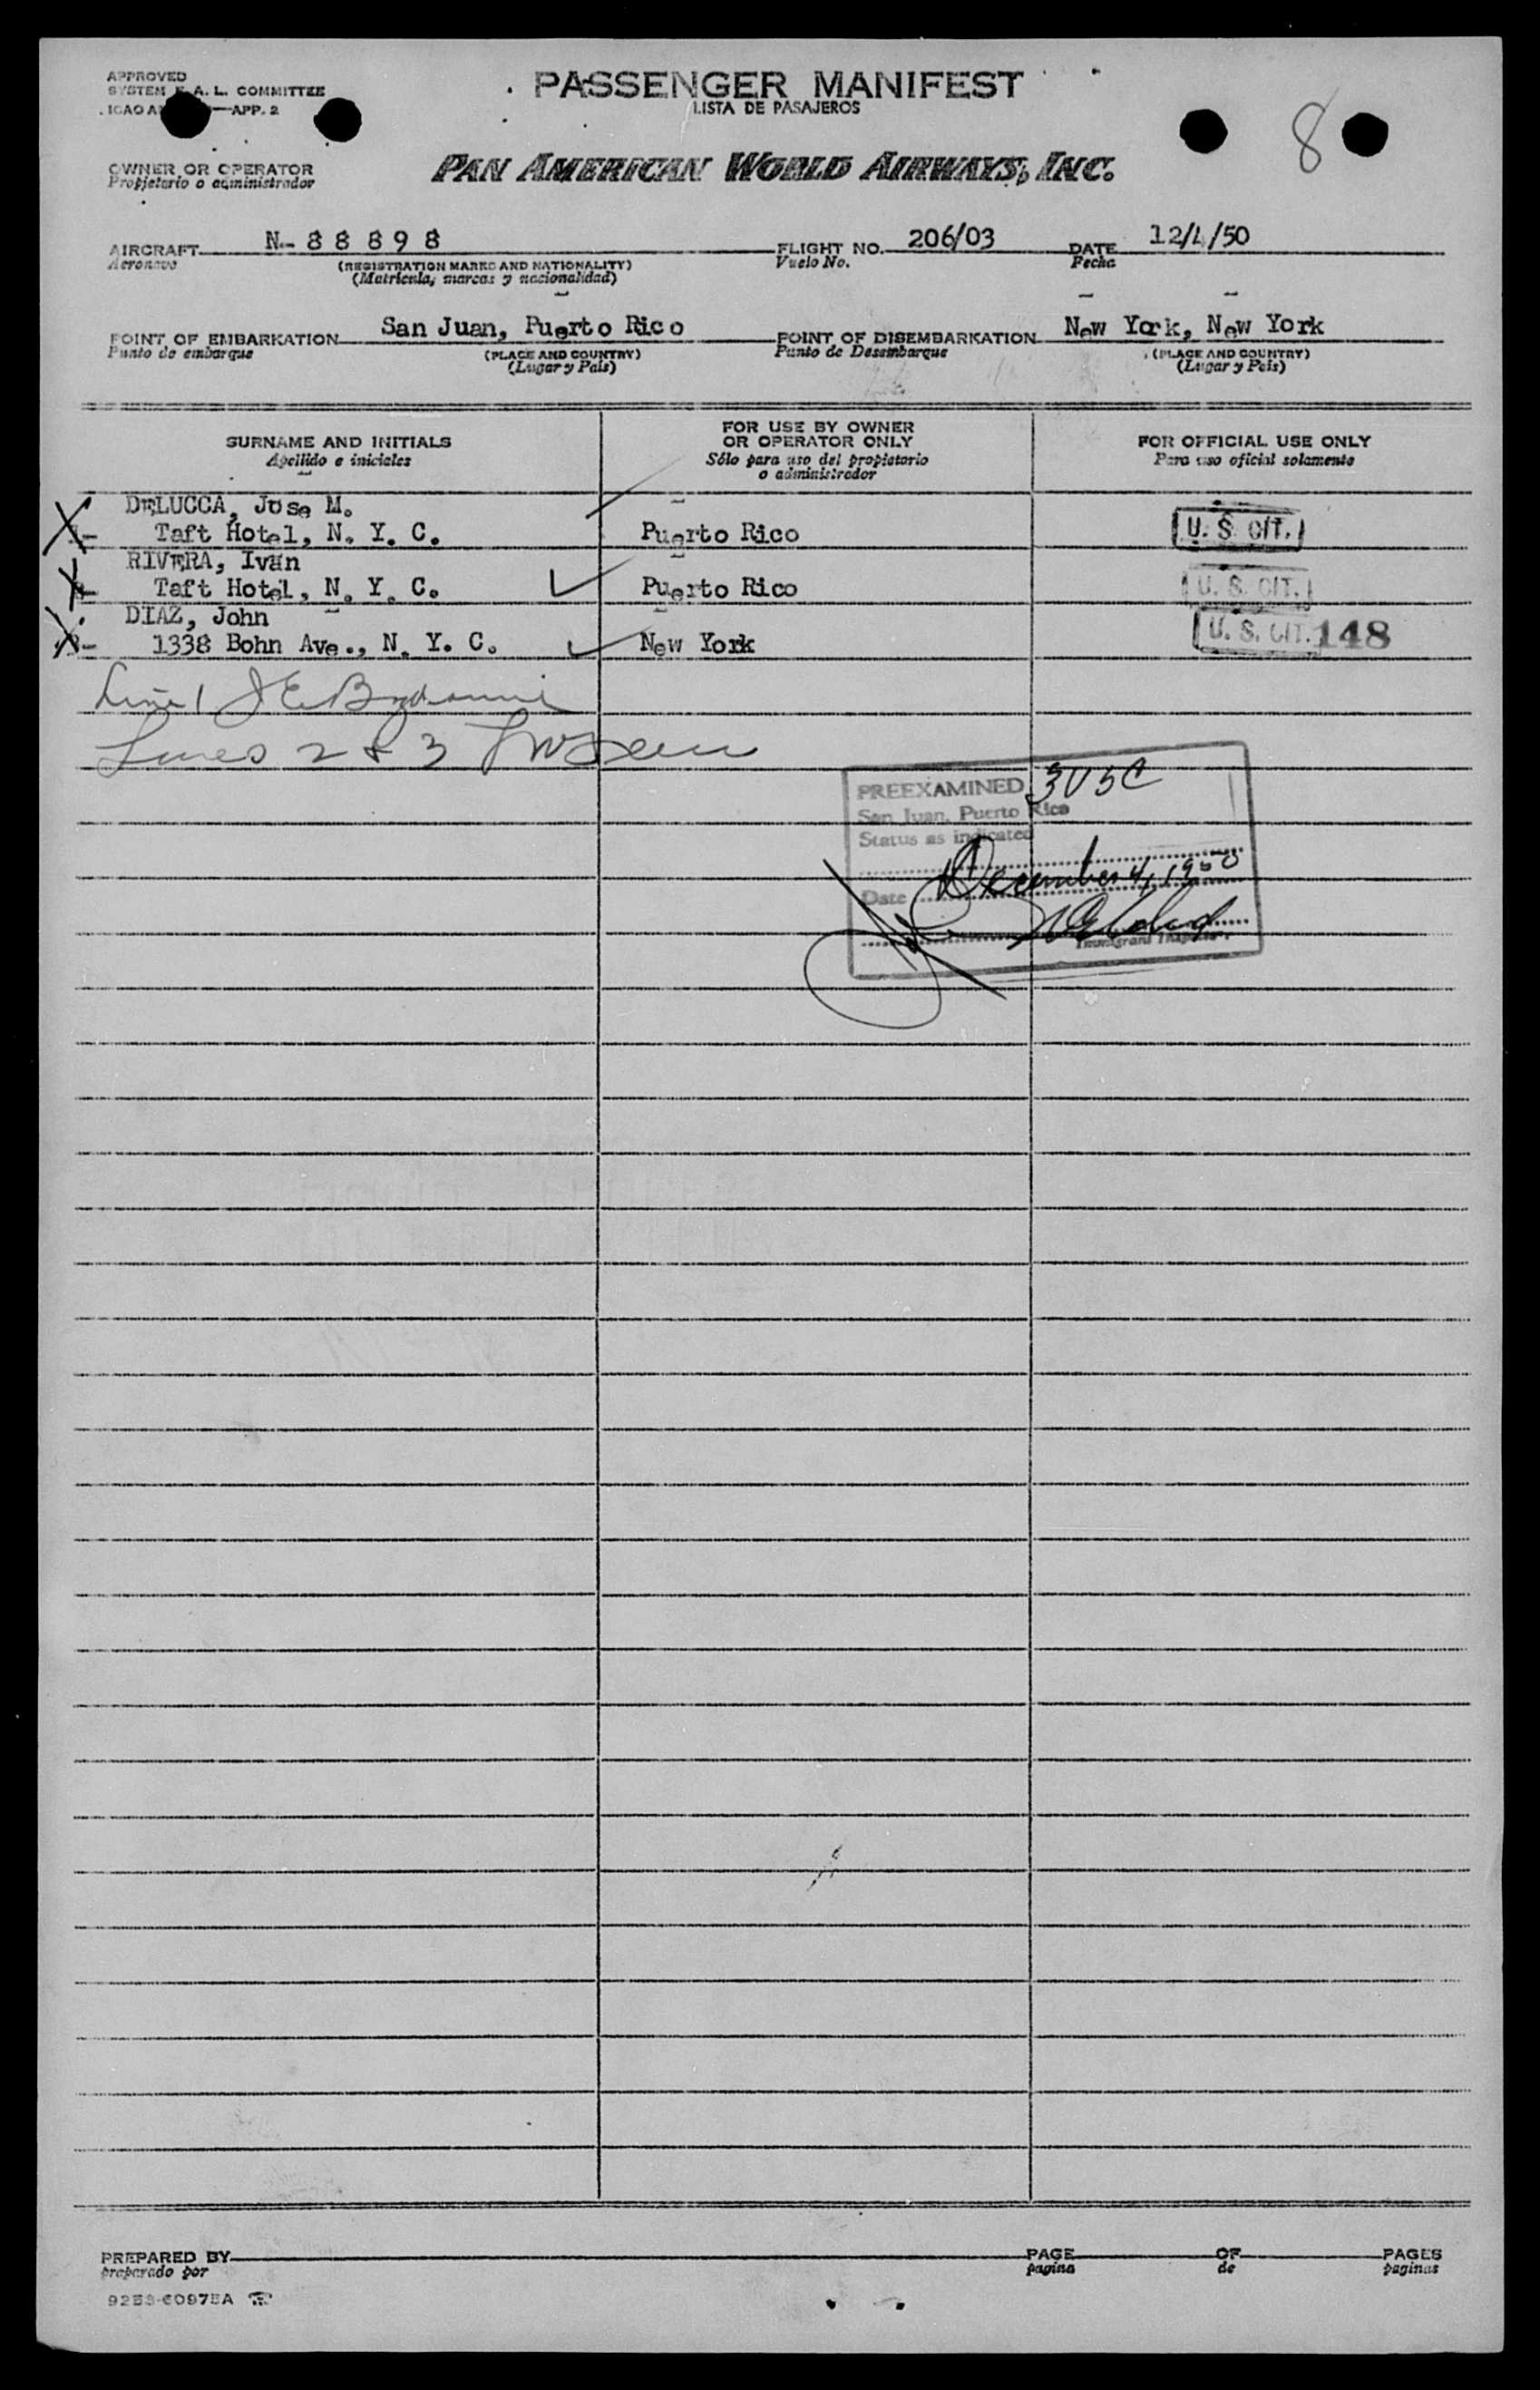 APPROVED
SYSTEM F. A. L. COMMITTEE
ICAO —APP. 2
PASSENGER MANIFEST
LISTA DE PASAJEROS
8
OWNER OR OPERATOR
Propietario o administrador
PAN AMERICAN WORLD AIRWAYS, INC.
AIRCRAFT N-88898 FLIGHT NO. 206/03 DATE 12/4/50
Aeronave (REGISTRATION MARKS AND NATIONALITY) Vuelo No. Fecha
(Matrícula, marcas y nacionalidad)
POINT OF EMBARKATION San Juan, Puerto Rico POINT OF DISEMBARKATION New York, New York
Punto de embarque (PLACE AND COUNTRY) Punto de Desembarque (PLACE AND COUNTRY)
(Lugar y País) (Lugar y País)
SURNAME AND INITIALS FOR USE BY OWNER OR OPERATOR ONLY FOR OFFICIAL USE ONLY
Apellido e iniciales Sólo para uso del propietario o administrador Para uso oficial solamente
DELUCCA, Jose M.
1- Taft Hotel, N. Y. C. Puerto Rico U. S. CIT.
RIVERA, Ivan
Taft Hotel, N. Y. C. Puerto Rico U. S. CIT.
DIAZ, John
1338 Bohn Ave., N. Y. C. New York U. S. CIT. 148
Line 1 J E
Lines 2 & 3
PREEXAMINED 3USC
San Juan, Puerto Rico
Status as indicated
Date December 4, 1950
Immigrant Inspector
PREPARED BY PAGE OF PAGES
preparado por pagina de paginas